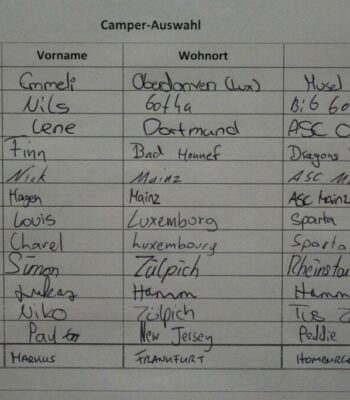 Camper-Auswahl
Vorname Wohnort
Emmeli Oberdonven (Lux) Musel
Nils Gotha BiG Go
Lene Dortmund ASC
Finn Bad Honnef Dragons
Nick Mainz ASC M
Hagen Mainz ASC Mainz
Louis Luxemburg Sparta
Charel Luxembourg Sparta
Simon Zülpich Rheinsta
Lukas Hamm Hamm
Niko Zülpich TuS Z
Paul New Jersey Peddie
MARKUS FRANKFURT HOMBURG